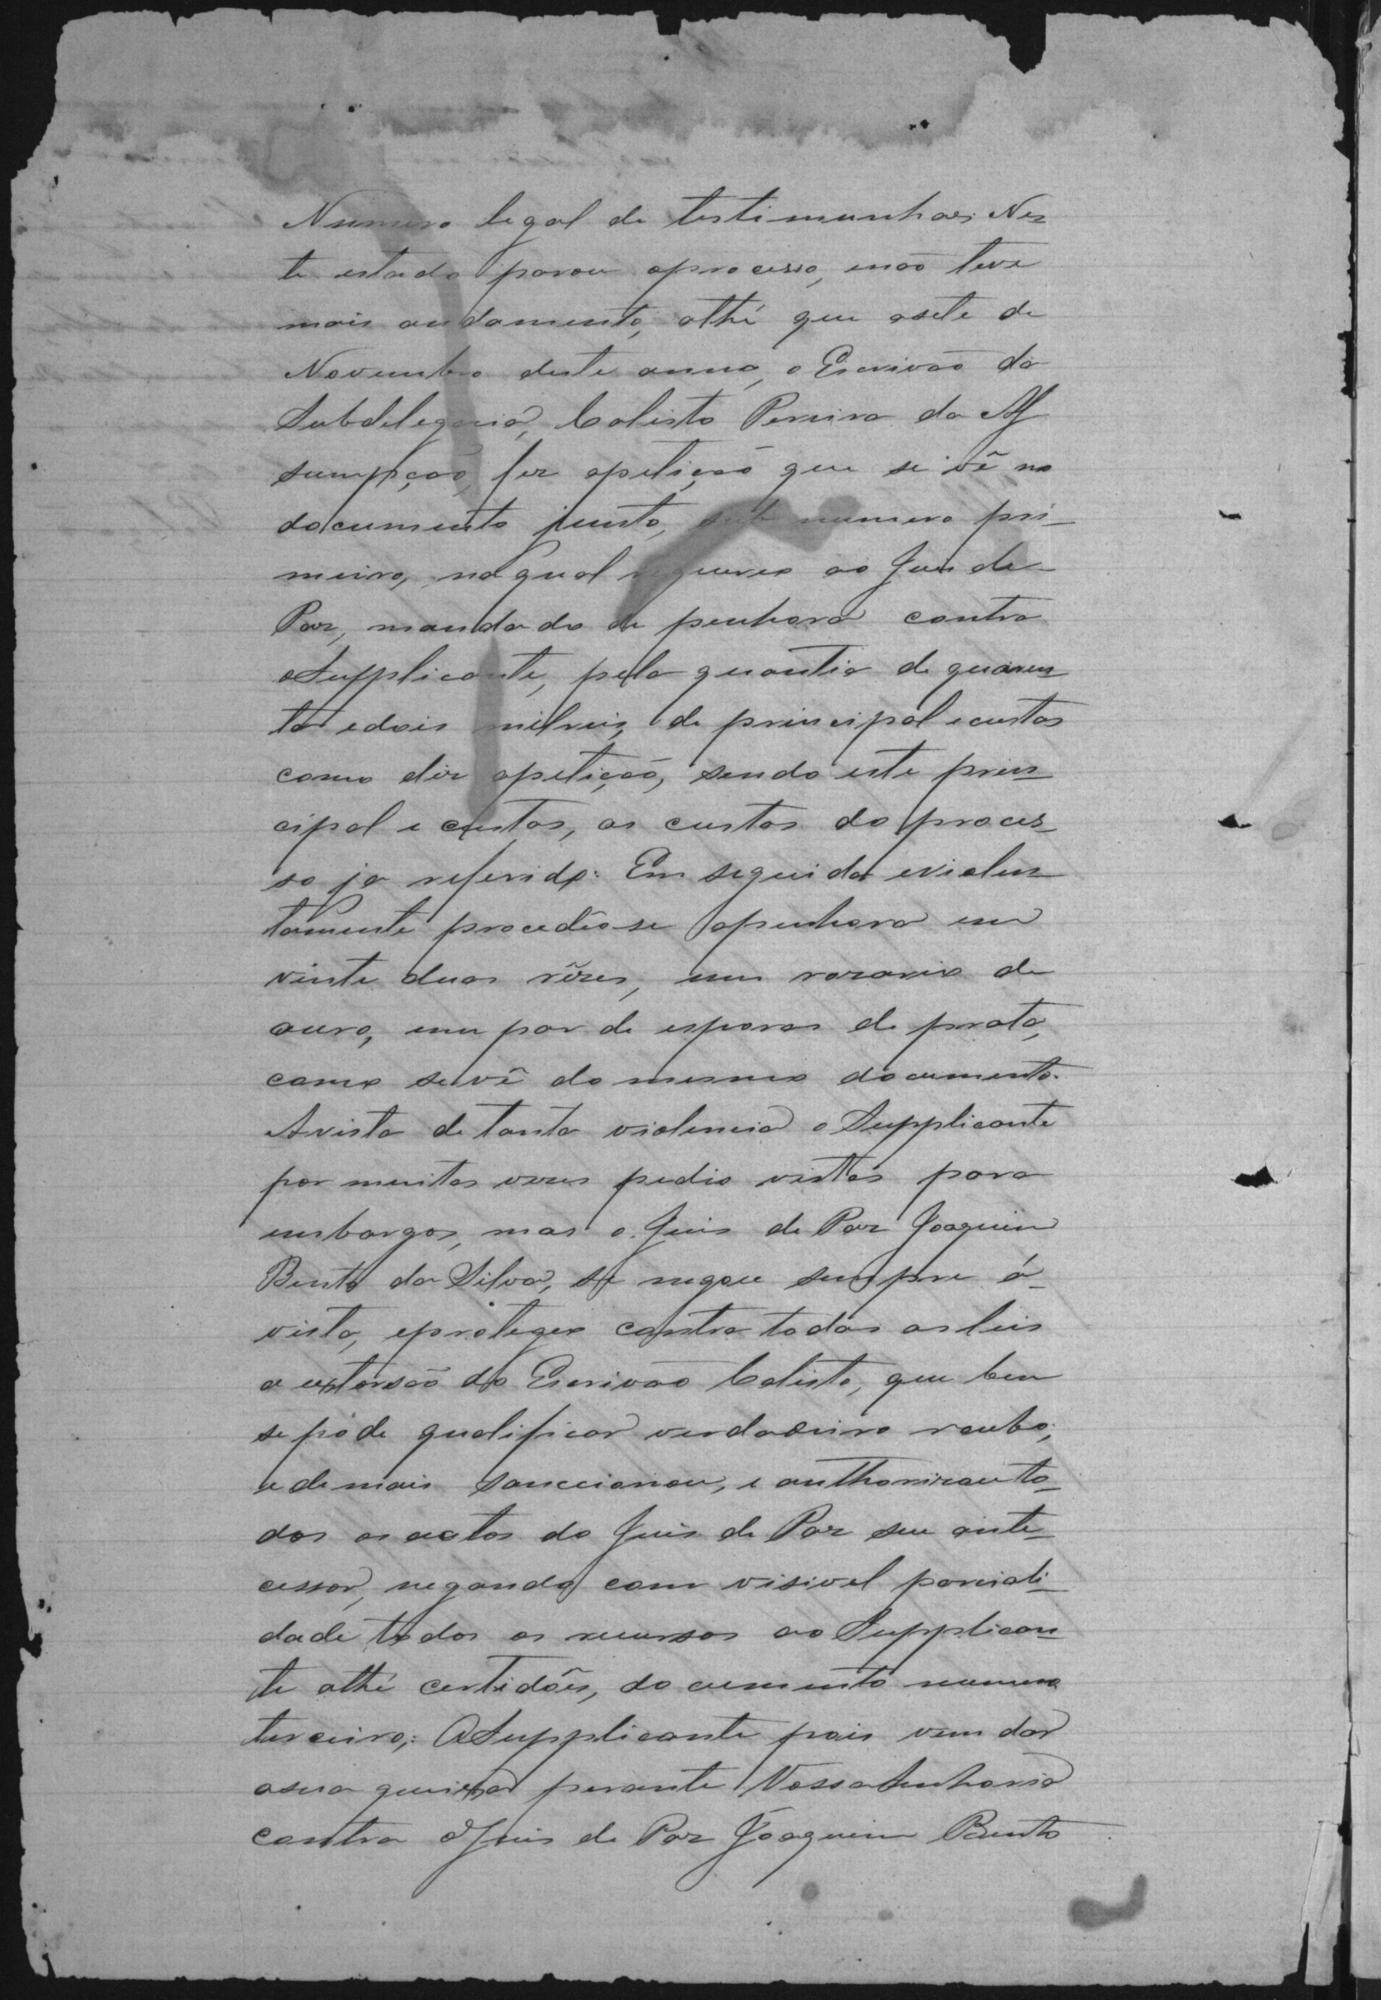 Numero legal de testimunhas: Nes-
te estado parou oprocesso, enão teve
mais andamento, athé que asete de
Novembro deste anno, o Escrivão da
Subdelegacia, Calisto Pereira da As
sumpção, fez apetição que se vê no
documento junto, sob numero pri-
meiro, naqual requereo ao Juis de
Paz, mandado de penhora contra
oSupplicante, pela quantia de quaren-
ta edois milreis, de principal ecustas
como diz apetição, sendo este prin-
cipal e custas, as custas do proces-
so ja referido: Em seguida eviolen-
tamente procedêo-se apenhora em
vinte duas rêzes, um rozario de
ouro, um par de esporas de prata,
como sevê do mesmo documento.
Avista de tanta violencia o Supplicante
por muitas vezes pedio vistas para
embargos, mas o Juis de Paz Joaquim
Bento da Silva, se negou sempre á-
vista, eprotegeo contra todas as leis
a extorsão do Escrivão Calisto, que bem
se póde qualificar verdadeiro roubo,
e demais sanccionou, e authorizou to-
dos os actos do Juis de Paz seu ante-
cessor, negando com visivel parciali-
dade todos os recursos ao Supplican-
te athé certidões, documento numero
terceiro; OSupplicante pois vem dar
asua queixa perante Vossa Senhoria
contra oJuis de Paz Joaquim Bento